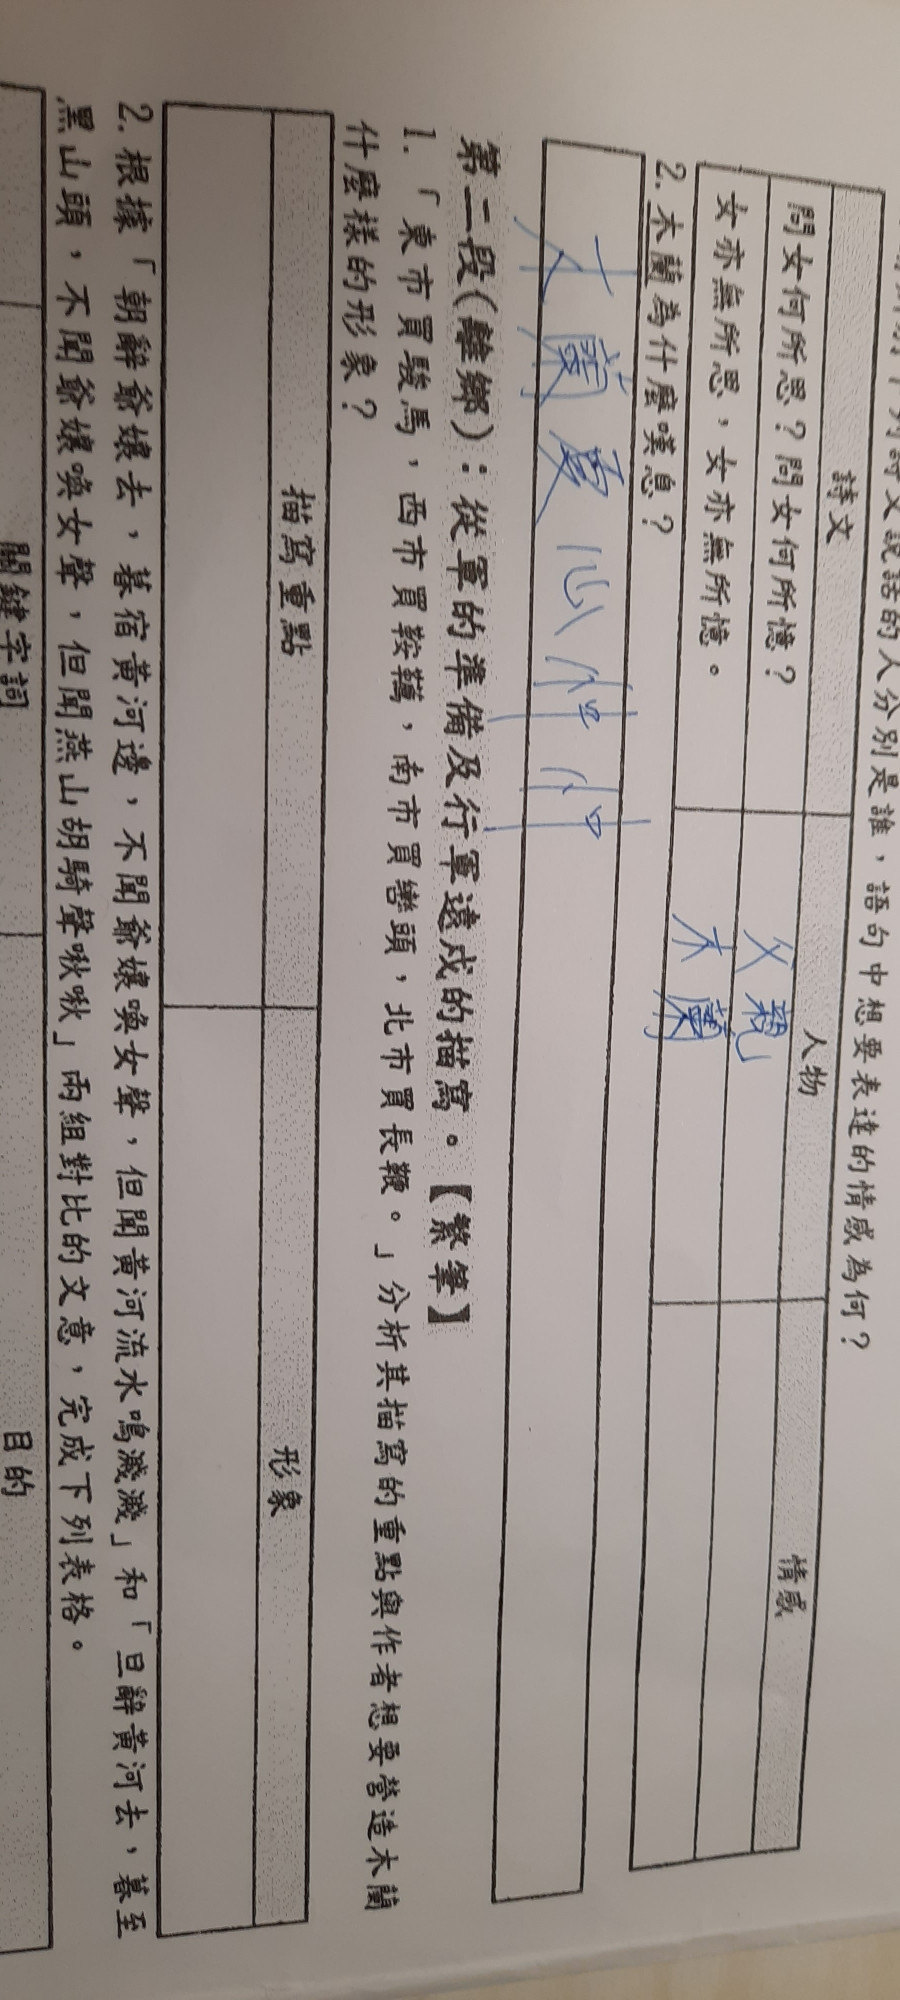 列詩文說話的人分別是誰，語句中想要表達的情感為何？
詩文 人物 情感
問女何所思？問女何所憶？ 父親
女亦無所思，女亦無所憶。 木蘭
2. 木蘭為什麼嘆息？
木蘭憂心忡忡
第二段（離鄉）：從軍的準備及行軍遠戍的描寫。【繁筆】
1. 「東市買駿馬，西市買鞍韉，南市買轡頭，北市買長鞭。」分析其描寫的重點與作者想要營造木蘭
什麼樣的形象？
描寫重點 形象
2. 根據「朝辭爺孃去，暮宿黃河邊，不聞爺孃喚女聲，但聞黃河流水鳴濺濺」和「旦辭黃河去，暮至
黑山頭，不聞爺孃喚女聲，但聞燕山胡騎聲啾啾」兩組對比的文意，完成下列表格。
關鍵字詞 目的